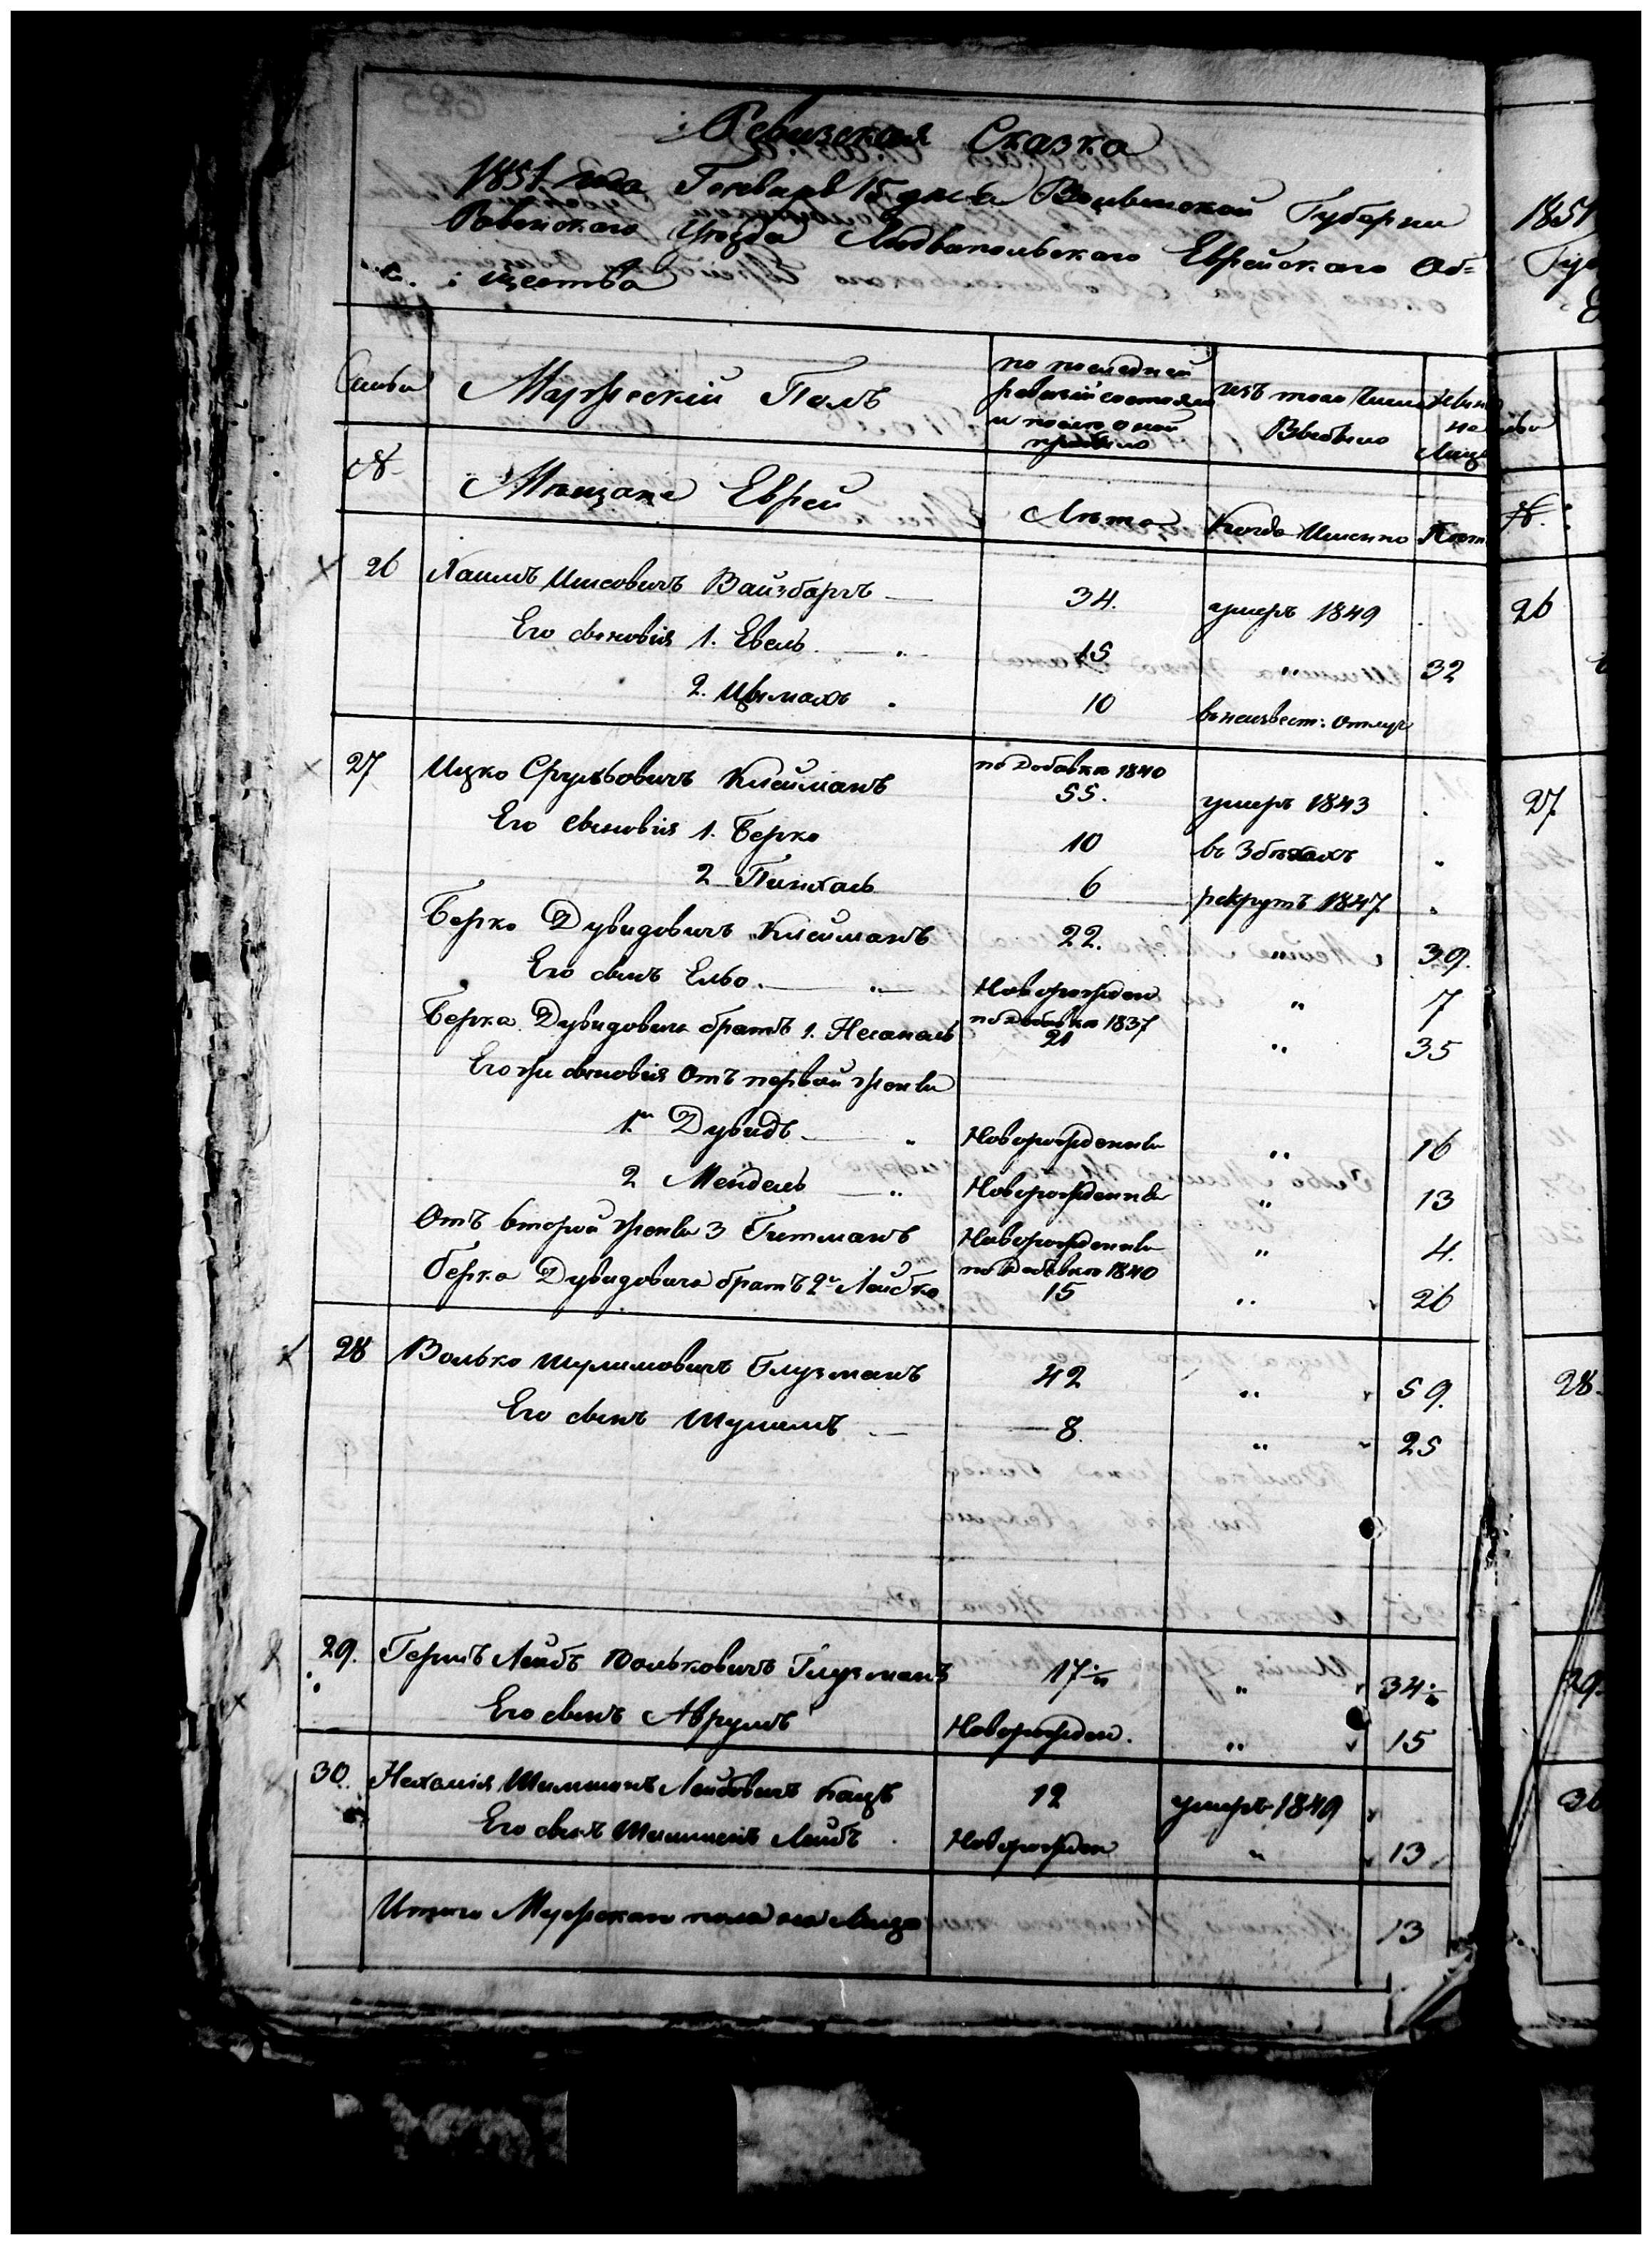 Ревизская Сказка
1851 года Генваря 15 дня Волынской Губернии
Ровенского Уезда Людвипольского Еврейского Об=
щества
Семьи Мужескій Полъ по последней ревизіи состояло и после оной прибыло изъ того числа Выбыло Ныне на лицо
№ Мещане Евреи Лета Когда Именно Лета
26 Хаимъ Иосовичъ Вайзбергъ 34. умеръ 1849
Его сыновья 1. Евель 15 " 32
2. Цымахъ 10 въ неизвест: отлуч
27 Ицко Срульовичъ Клейманъ по добавке 1840 55. умеръ 1843
Его сыновья 1. Берко 10 въ Збегахъ
2 Пинхасъ 6 рекрутъ 1847
Берко Дувидовичъ Клейманъ 22. " 39.
Его сынъ Ельо Новорожден " 7
Берка Дувидовича братъ 1. по добавке 1837 21 " 35
Его же сыновья отъ первой жены
1. Дувидъ Новорожденны " 16
2 Мендель Новорожденны " 13
Отъ второй жены 3 Гитманъ Новорожденны " 4.
Берка Дувидовича братъ 2й Лейбко по добавке 1840 15 " 26
28 Волько Шулимовичъ Глузманъ 42 " 59.
Его сынъ Шулимъ 8 " 25
29. Гершъ Лейбъ Вольковичъ Глузманъ 17 ½ " 34 ½
Его сынъ Аврумъ Новорожден. " 15
30. Нахамія Шимшонъ Лейбовичъ Кацъ 12 умеръ 1849
Его сынъ Шимшонъ Лейбъ Новорожден " 13
Итого Мужеского пола на лицо 13
1851
№.
26
27
28.
29.